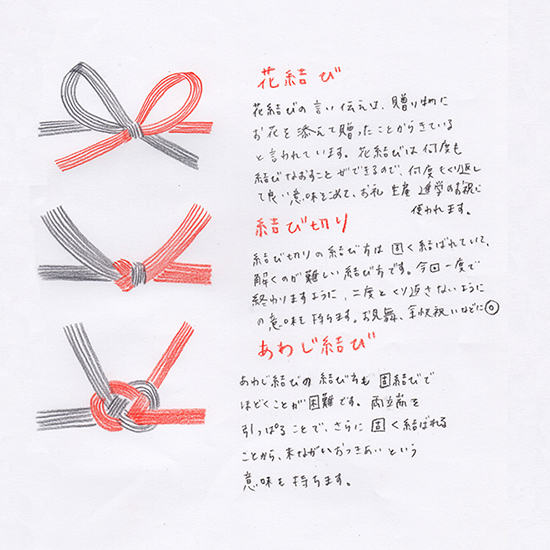 花結び
花結びの言い伝えは、贈り物に
お花を添えて贈ったことからきている
と言われています。花結びは何度も
結びなおすことができるので、何度もくり返し
て良い意味をこめて、お礼 出産 進学のお祝に
使われます。
結び切り
結び切りの結び方は固く結ばれていて、
解くのが難しい結び方です。今回一度で
終わりますように、二度とくり返さないように
の意味も持ちます。お見舞、全快祝いなどに◎
あわじ結び
あわじ結びの結び方も固結びで
ほどくことが困難です。両端を
引っぱることで、さらに固く結ばれる
ことから、末ながいおつきあいという
意味も持ちます。